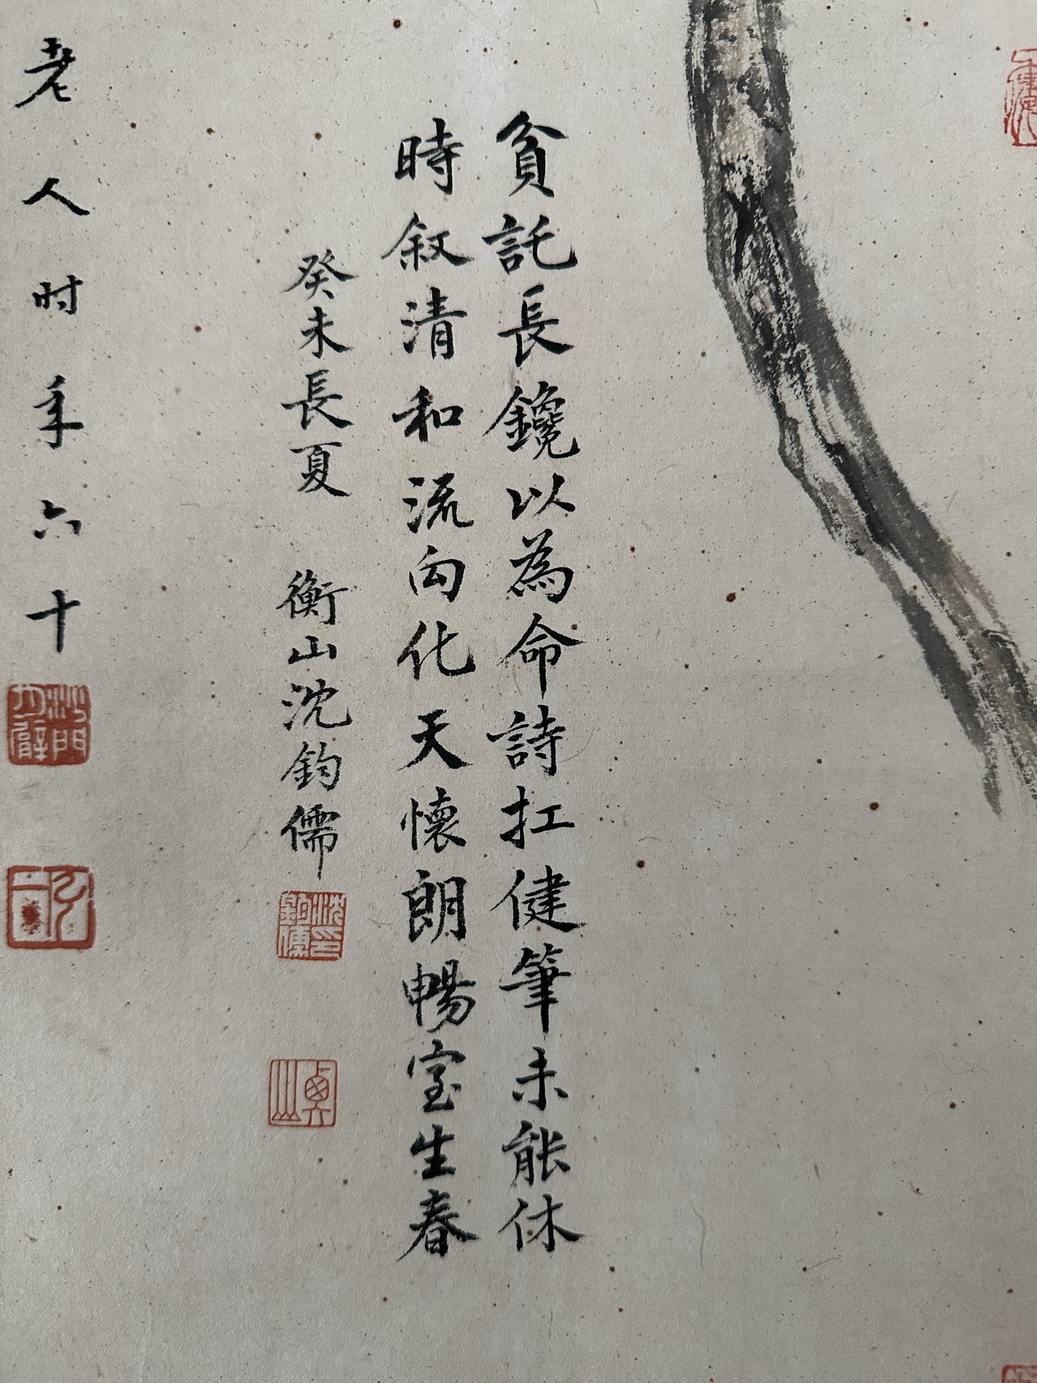 貧託長鑱以為命詩扛健筆未能休
時叙清和流向化天懷朗暢室生春
癸未長夏 衡山沈鈞儒
沈鈞儒印
老人时年六十